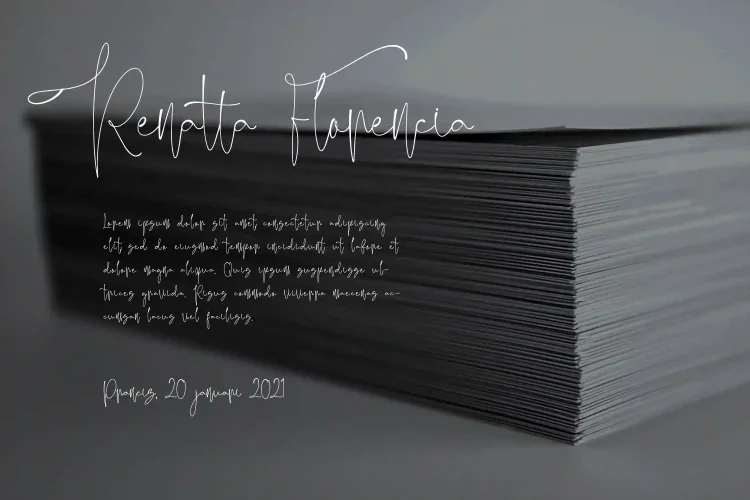 Renatta Florencia
Lorem ipsum dolor sit amet consectetur adipiscing
elit sed do eiusmod tempor incididunt ut labore et
dolore magna aliqua. Quis ipsum suspendisse ul-
trices gravida. Risus commodo viverra maecenas ac-
cumsan lacus vel facilisis.
20 januari 2021